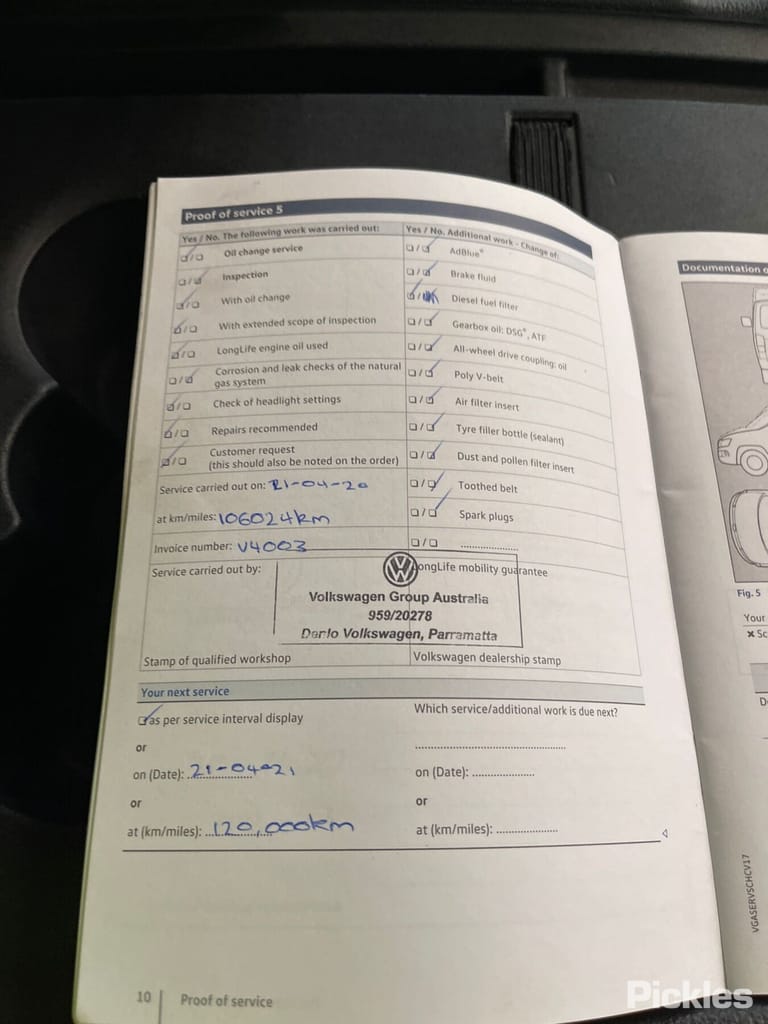 Proof of service 5
Yes / No. The following work was carried out:
☑/☐ Oil change service
☐/☑ Inspection
☑/☐ With oil change
☑/☐ With extended scope of inspection
☑/☐ LongLife engine oil used
☐/☑ Corrosion and leak checks of the natural
gas system
☑/☐ Check of headlight settings
☑/☐ Repairs recommended
☑/☐ Customer request
(this should also be noted on the order)
Service carried out on: 21-04-20
at km/miles: 106024km
Invoice number: V4003
Yes / No. Additional work - Change of:
☐/☑ AdBlue®
☐/☑ Brake fluid
☑/☐ Diesel fuel filter
☐/☑ Gearbox oil: DSG®, ATF
☐/☑ All-wheel drive coupling: oil
☐/☑ Poly V-belt
☐/☑ Air filter insert
☐/☑ Tyre filler bottle (sealant)
☐/☑ Dust and pollen filter insert
☐/☑ Toothed belt
☐/☑ Spark plugs
☐/☐ ....................
Service carried out by:
LongLife mobility guarantee
Volkswagen Group Australia
959/20278
Volkswagen, Parramatta
Stamp of qualified workshop
Volkswagen dealership stamp
Your next service
☑ as per service interval display
or
on (Date): 21-04-21
or
at (km/miles): 120,000km
Which service/additional work is due next?
..................................................
on (Date): ....................
or
at (km/miles): ....................
10 Proof of service
Documentation
Fig. 5
Your
VGASERVSCHCV17
Pickles